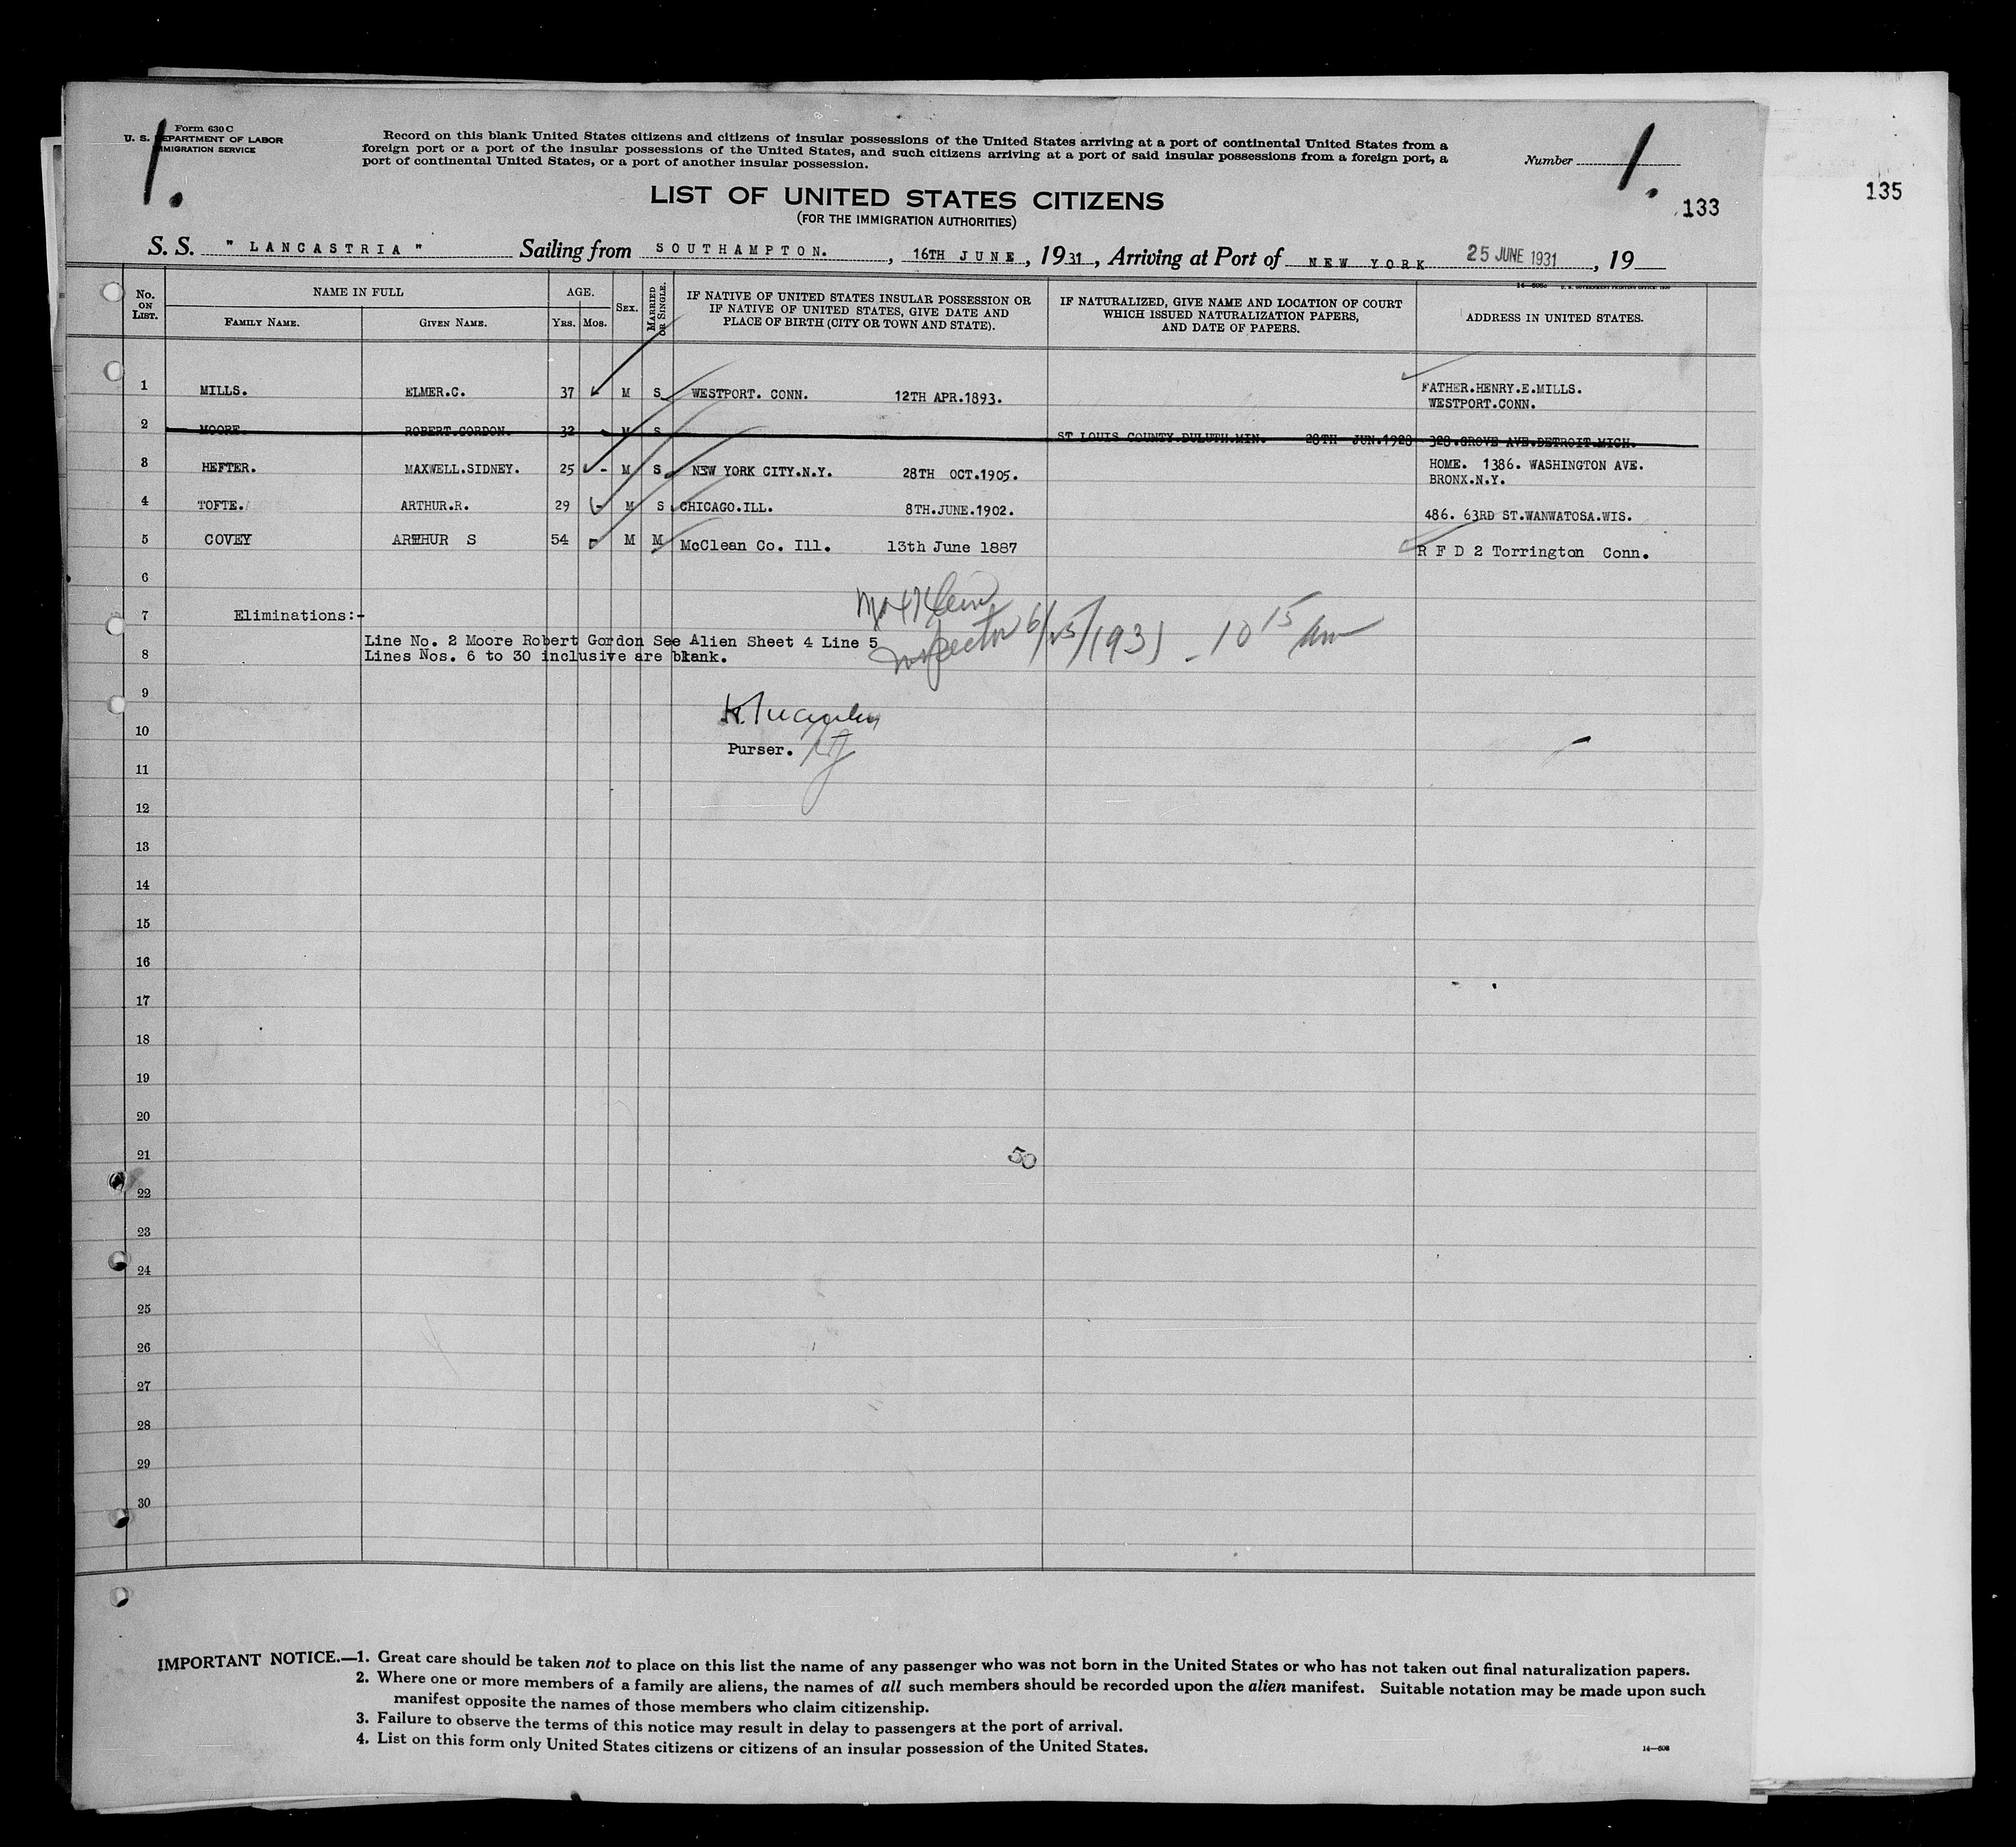 Form 630 C
U. S. DEPARTMENT OF LABOR
IMMIGRATION SERVICE
1.
Record on this blank United States citizens and citizens of insular possessions of the United States arriving at a port of continental United States from a
foreign port or a port of the insular possessions of the United States, and such citizens arriving at a port of said insular possessions from a foreign port, a
port of continental United States, or a port of another insular possession.
Number 1.
133
135
LIST OF UNITED STATES CITIZENS
(FOR THE IMMIGRATION AUTHORITIES)
S. S. " LANCASTRIA " Sailing from SOUTHAMPTON. , 16TH JUNE , 1931 , Arriving at Port of NEW YORK 25 JUNE 1931 , 19
No. ON LIST. NAME IN FULL AGE. SEX. MARRIED OR SINGLE. IF NATIVE OF UNITED STATES INSULAR POSSESSION OR IF NATIVE OF UNITED STATES, GIVE DATE AND PLACE OF BIRTH (CITY OR TOWN AND STATE). IF NATURALIZED, GIVE NAME AND LOCATION OF COURT WHICH ISSUED NATURALIZATION PAPERS, AND DATE OF PAPERS. ADDRESS IN UNITED STATES.
FAMILY NAME. GIVEN NAME. YRS. MOS.
1 MILLS. ELMER.C. 37 M S WESTPORT. CONN. 12TH APR.1893. FATHER.HENRY.E.MILLS.
WESTPORT.CONN.
2 MOORE. ROBERT.GORDON. 32 - M S ST LOUIS COUNTY.DULUTH.MIN. 28TH JUN.1928 328.GROVE AVE.DETROIT.MICH.
3 HEFTER. MAXWELL.SIDNEY. 25 - M S NEW YORK CITY.N.Y. 28TH OCT.1905. HOME. 1386. WASHINGTON AVE.
BRONX.N.Y.
4 TOFTE. ARTHUR.R. 29 - M S CHICAGO.ILL. 8TH.JUNE.1902. 486. 63RD ST.WANWATOSA.WIS.
5 COVEY ARTHUR S 54 - M M McClean Co. Ill. 13th June 1887 R F D 2 Torrington Conn.
6
7 Eliminations:-
Line No. 2 Moore Robert Gordon See Alien Sheet 4 Line 5
8 Lines Nos. 6 to 30 inclusive are blank.
Inspector 6/25/1931 - 10 15 am
9
10 Purser.
11
12
13
14
15
16
17
18
19
20
21 50
22
23
24
25
26
27
28
29
30
IMPORTANT NOTICE.—1. Great care should be taken not to place on this list the name of any passenger who was not born in the United States or who has not taken out final naturalization papers.
2. Where one or more members of a family are aliens, the names of all such members should be recorded upon the alien manifest. Suitable notation may be made upon such
manifest opposite the names of those members who claim citizenship.
3. Failure to observe the terms of this notice may result in delay to passengers at the port of arrival.
4. List on this form only United States citizens or citizens of an insular possession of the United States.
14—608